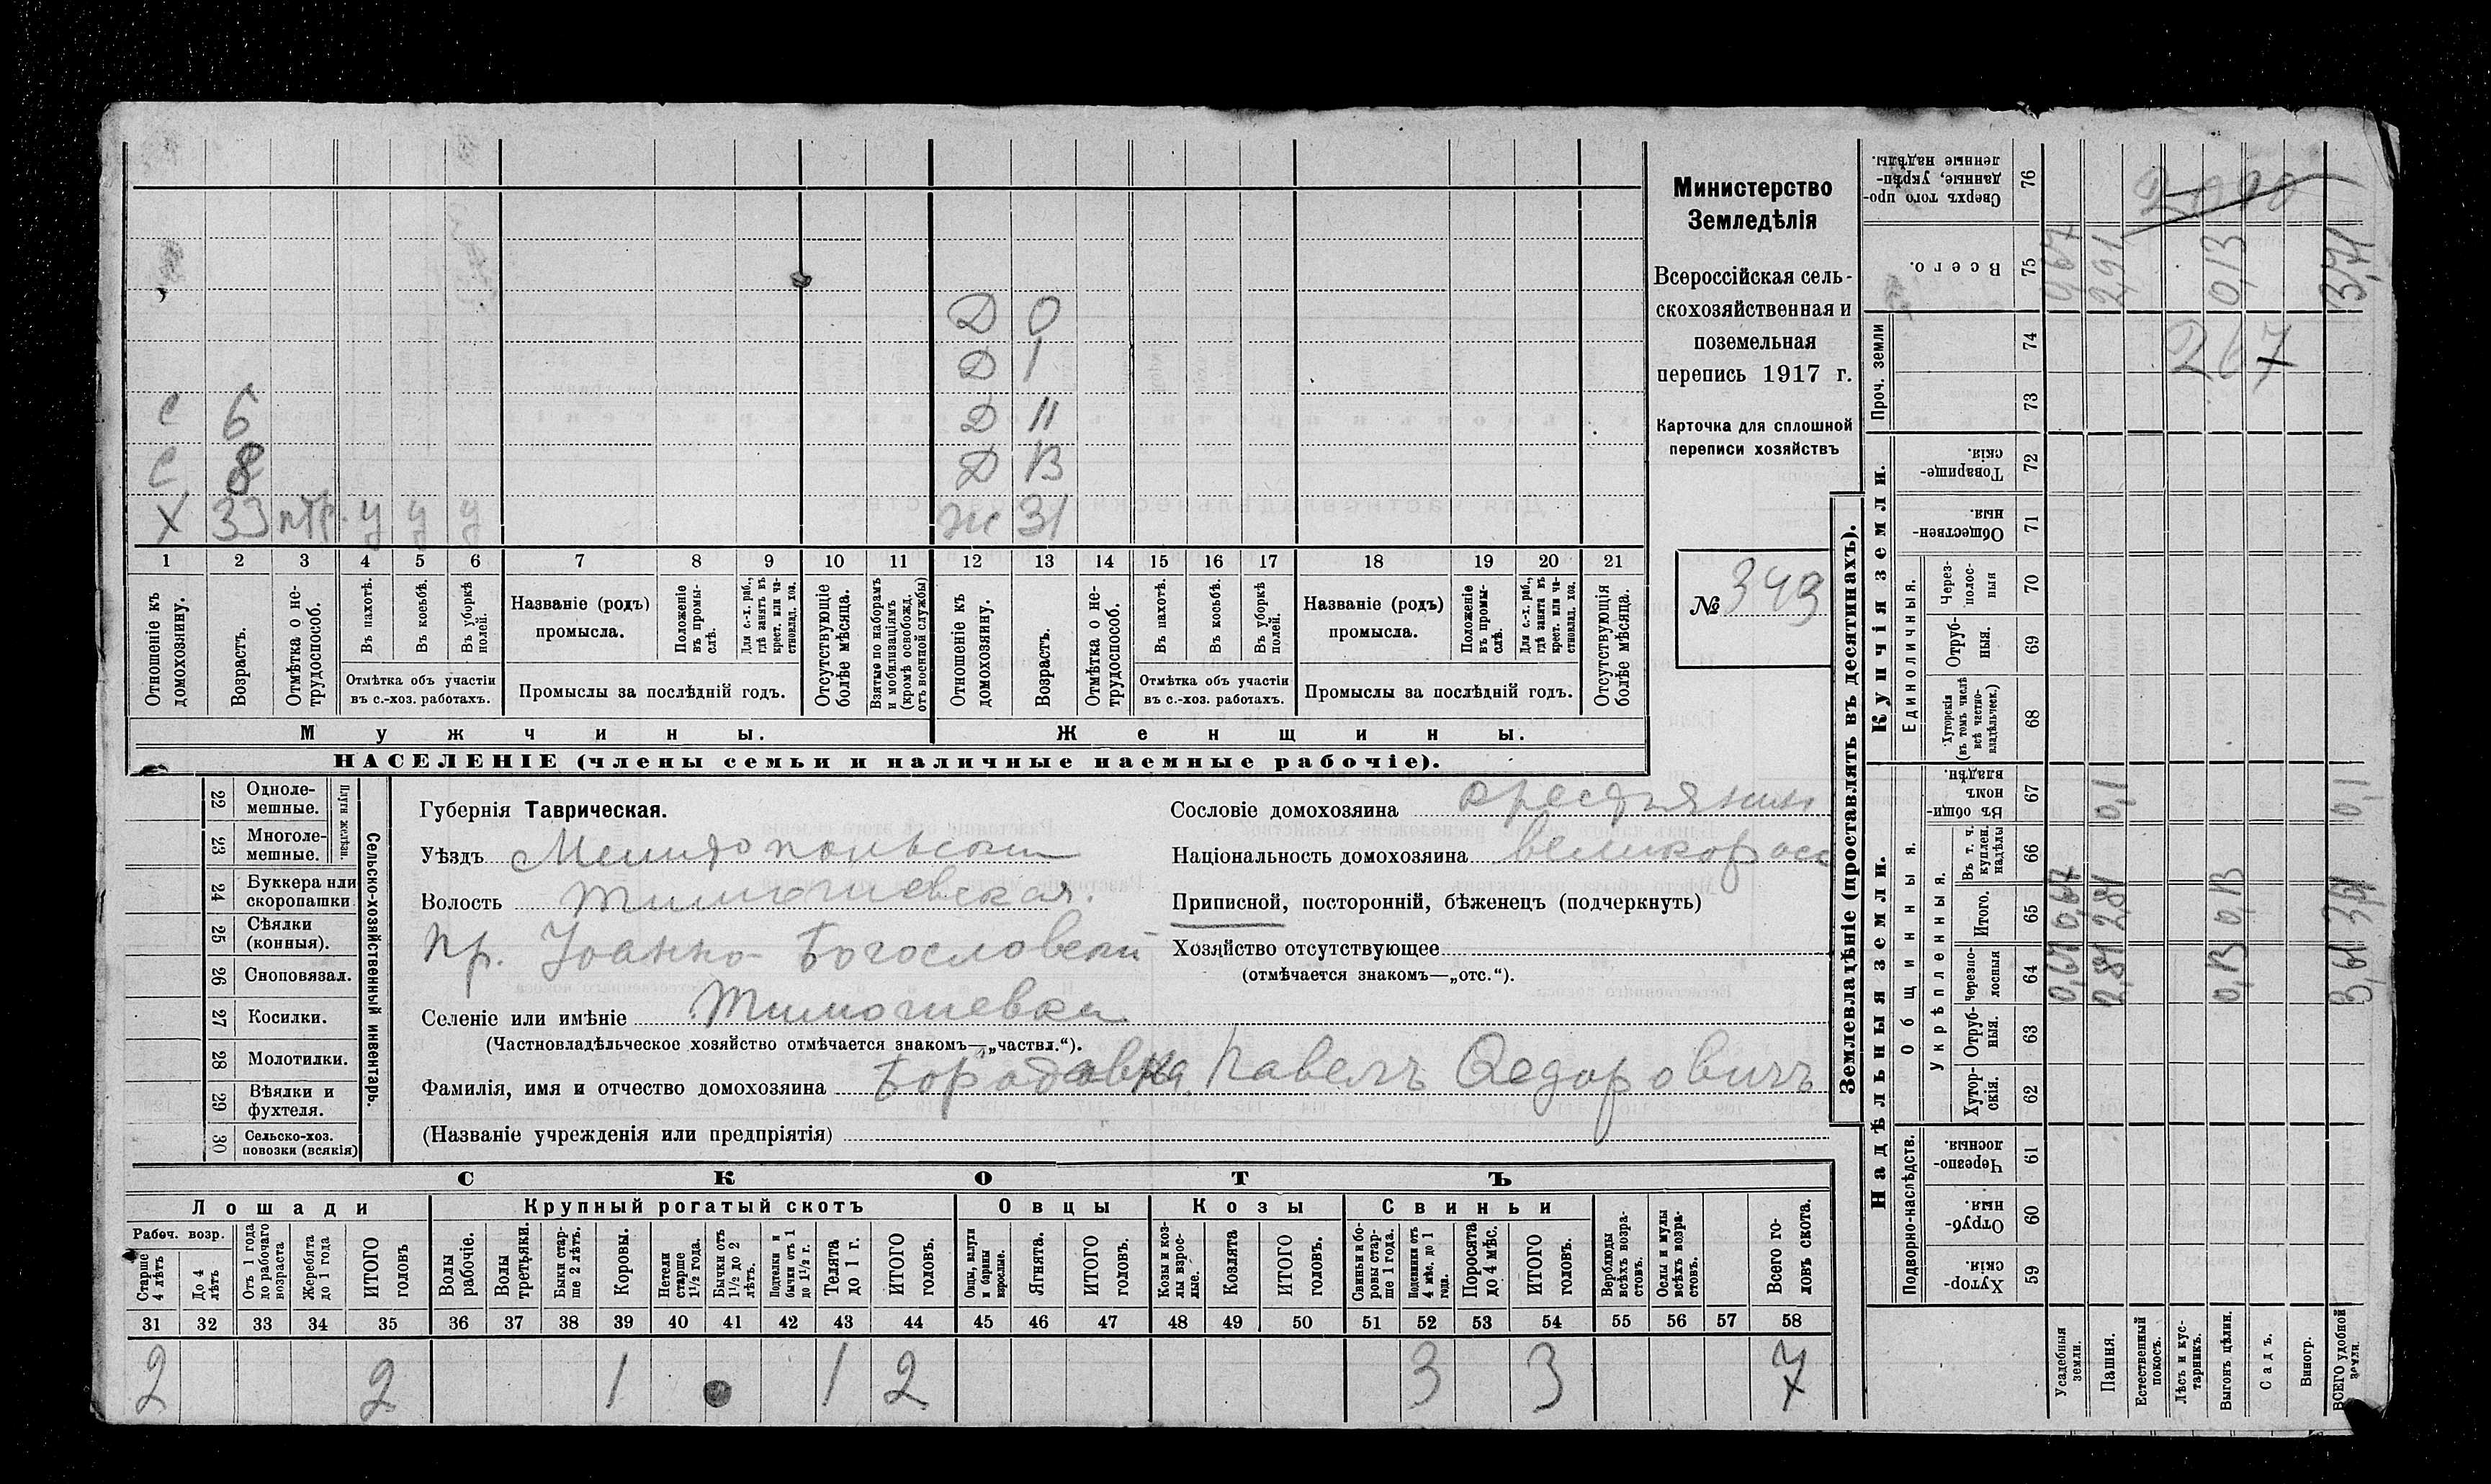 Министерство
Земледѣлія
Всероссійская сель-
скохозяйственная и
поземельная
перепись 1917 г.
Карточка для сплошной
переписи хозяйствъ
№ 349
Д 0
Д 1
С 6 Д 11
С 8 Д 13
Х 33 у у у Ж 31
1 2 3 4 5 6 7 8 9 10 11 12 13 14 15 16 17 18 19 20 21
Отношеніе къ домохозяину.
Возрастъ.
Отмѣтка о не-трудоспособ.
Въ пахотѣ.
Въ косьбѣ.
Въ уборкѣ полей.
Отмѣтка объ участіи
въ с.-хоз. работахъ.
Названіе (родъ)
промысла.
Положеніе въ промы-слѣ.
Для с.-х. раб., гдѣ занятъ въ крест. или ча-стновлад. хоз.
Промыслы за послѣдній годъ.
Отсутствующіе болѣе мѣсяца.
Взятые по наборамъ и мобилизаціямъ (кромѣ освобожд. отъ военной службы)
Отношеніе къ домохозяину.
Возрастъ.
Отмѣтка о не-трудоспособ.
Въ пахотѣ.
Въ косьбѣ.
Въ уборкѣ полей.
Отмѣтка объ участіи
въ с.-хоз. работахъ.
Названіе (родъ)
промысла.
Положеніе въ промы-слѣ.
Для с.-х. раб., гдѣ занята въ крест. или ча-стновлад. хоз.
Промыслы за послѣдній годъ.
Отсутствующія болѣе мѣсяца.
Мужчины. Женщины.
НАСЕЛЕНІЕ (члены семьи и наличные наемные рабочіе).
22 Одноле-мешные.
23 Многоле-мешные.
Плуги желѣзн.
24 Буккера или скоропашки
25 Сѣялки (конныя).
26 Сноповязал.
27 Косилки.
28 Молотилки.
29 Вѣялки и фухтеля.
30 Сельско-хоз. повозки (всякія)
Сельско-хозяйственный инвентарь.
Губернія Таврическая.
Уѣздъ Мелитопольскій
Волость Тимошевская.
Пр. Іоанно-Богословскій
Селеніе или имѣніе Тимошевка
(Частновладѣльческое хозяйство отмѣчается знакомъ—„частвл.“).
Фамилія, имя и отчество домохозяина Павелъ Федоровичъ
(Названіе учрежденія или предпріятія)
Сословіе домохозяина крестьянин
Національность домохозяина великоросс
Приписной, посторонній, бѣженецъ (подчеркнуть)
Хозяйство отсутствующее
(отмѣчается знакомъ—„отс.“).
СКОТЪ
Лошади Крупный рогатый скотъ Овцы Козы Свиньи
Рабоч. возр.
Старше 4 лѣтъ
До 4 лѣтъ
Отъ 1 года до рабочаго возраста
Жеребята до 1 года
ИТОГО головъ
Волы рабочіе.
Волы третьяки.
Быки стар-ше 2 лѣтъ.
Коровы.
Нетели старше 1½ года.
Бычки отъ 1½ до 2 лѣтъ.
Подтелки и бычки отъ 1 до 1½ г.
Телята до 1 г.
ИТОГО головъ.
Овцы, валухи и бараны взрослые.
Ягнята.
ИТОГО головъ.
Козы и коз-лы взрос-лые.
Козлята
ИТОГО головъ.
Свиньи и бо-ровы стар-ше 1 года.
Подсвинки отъ 4 мѣс. до 1 года.
Поросята до 4 мѣс.
ИТОГО головъ.
Верблюды всѣхъ возра-стовъ.
Ослы и мулы всѣхъ возра-стовъ.
Всего го-ловъ скота.
31 32 33 34 35 36 37 38 39 40 41 42 43 44 45 46 47 48 49 50 51 52 53 54 55 56 57 58
2 2 1 1 2 3 3 7
Землевладѣніе (проставлять въ десятинахъ).
Надѣльныя земли. Купчія земли. Проч. земли
Подворно-наслѣдств. Общинныя. Единоличныя.
Укрѣпленныя.
Сверхъ того про-данные, укрѣп-ленные надѣлы. 76
Всего. 75 2,91 0,13 3,71
74 267
73
Товарище-скія. 72
Обществен-ныя. 71
Через-полос-ныя 70
Отруб-ныя. 69
Хуторскія (въ томъ числѣ всѣ частно-владѣльческ.) 68
Въ общин-номъ владѣн. 67 0,1 0,1
Въ т. ч. куплен. надѣлы 66
Итого. 65 0,67 2,81 0,13
Черезпо-лосныя 64 0,67 2,81 0,13 3,61
Отруб-ныя. 63
Хутор-скія. 62
Черезпо-лосныя. 61
Отруб-ныя. 60
Хутор-скія. 59
Усадебныя земли.
Пашня.
Естественный покосъ.
Лѣсъ и кус-тарникъ.
Выгонъ цѣлин.
Садъ.
Виногр.
ВСЕГО удобной земли.